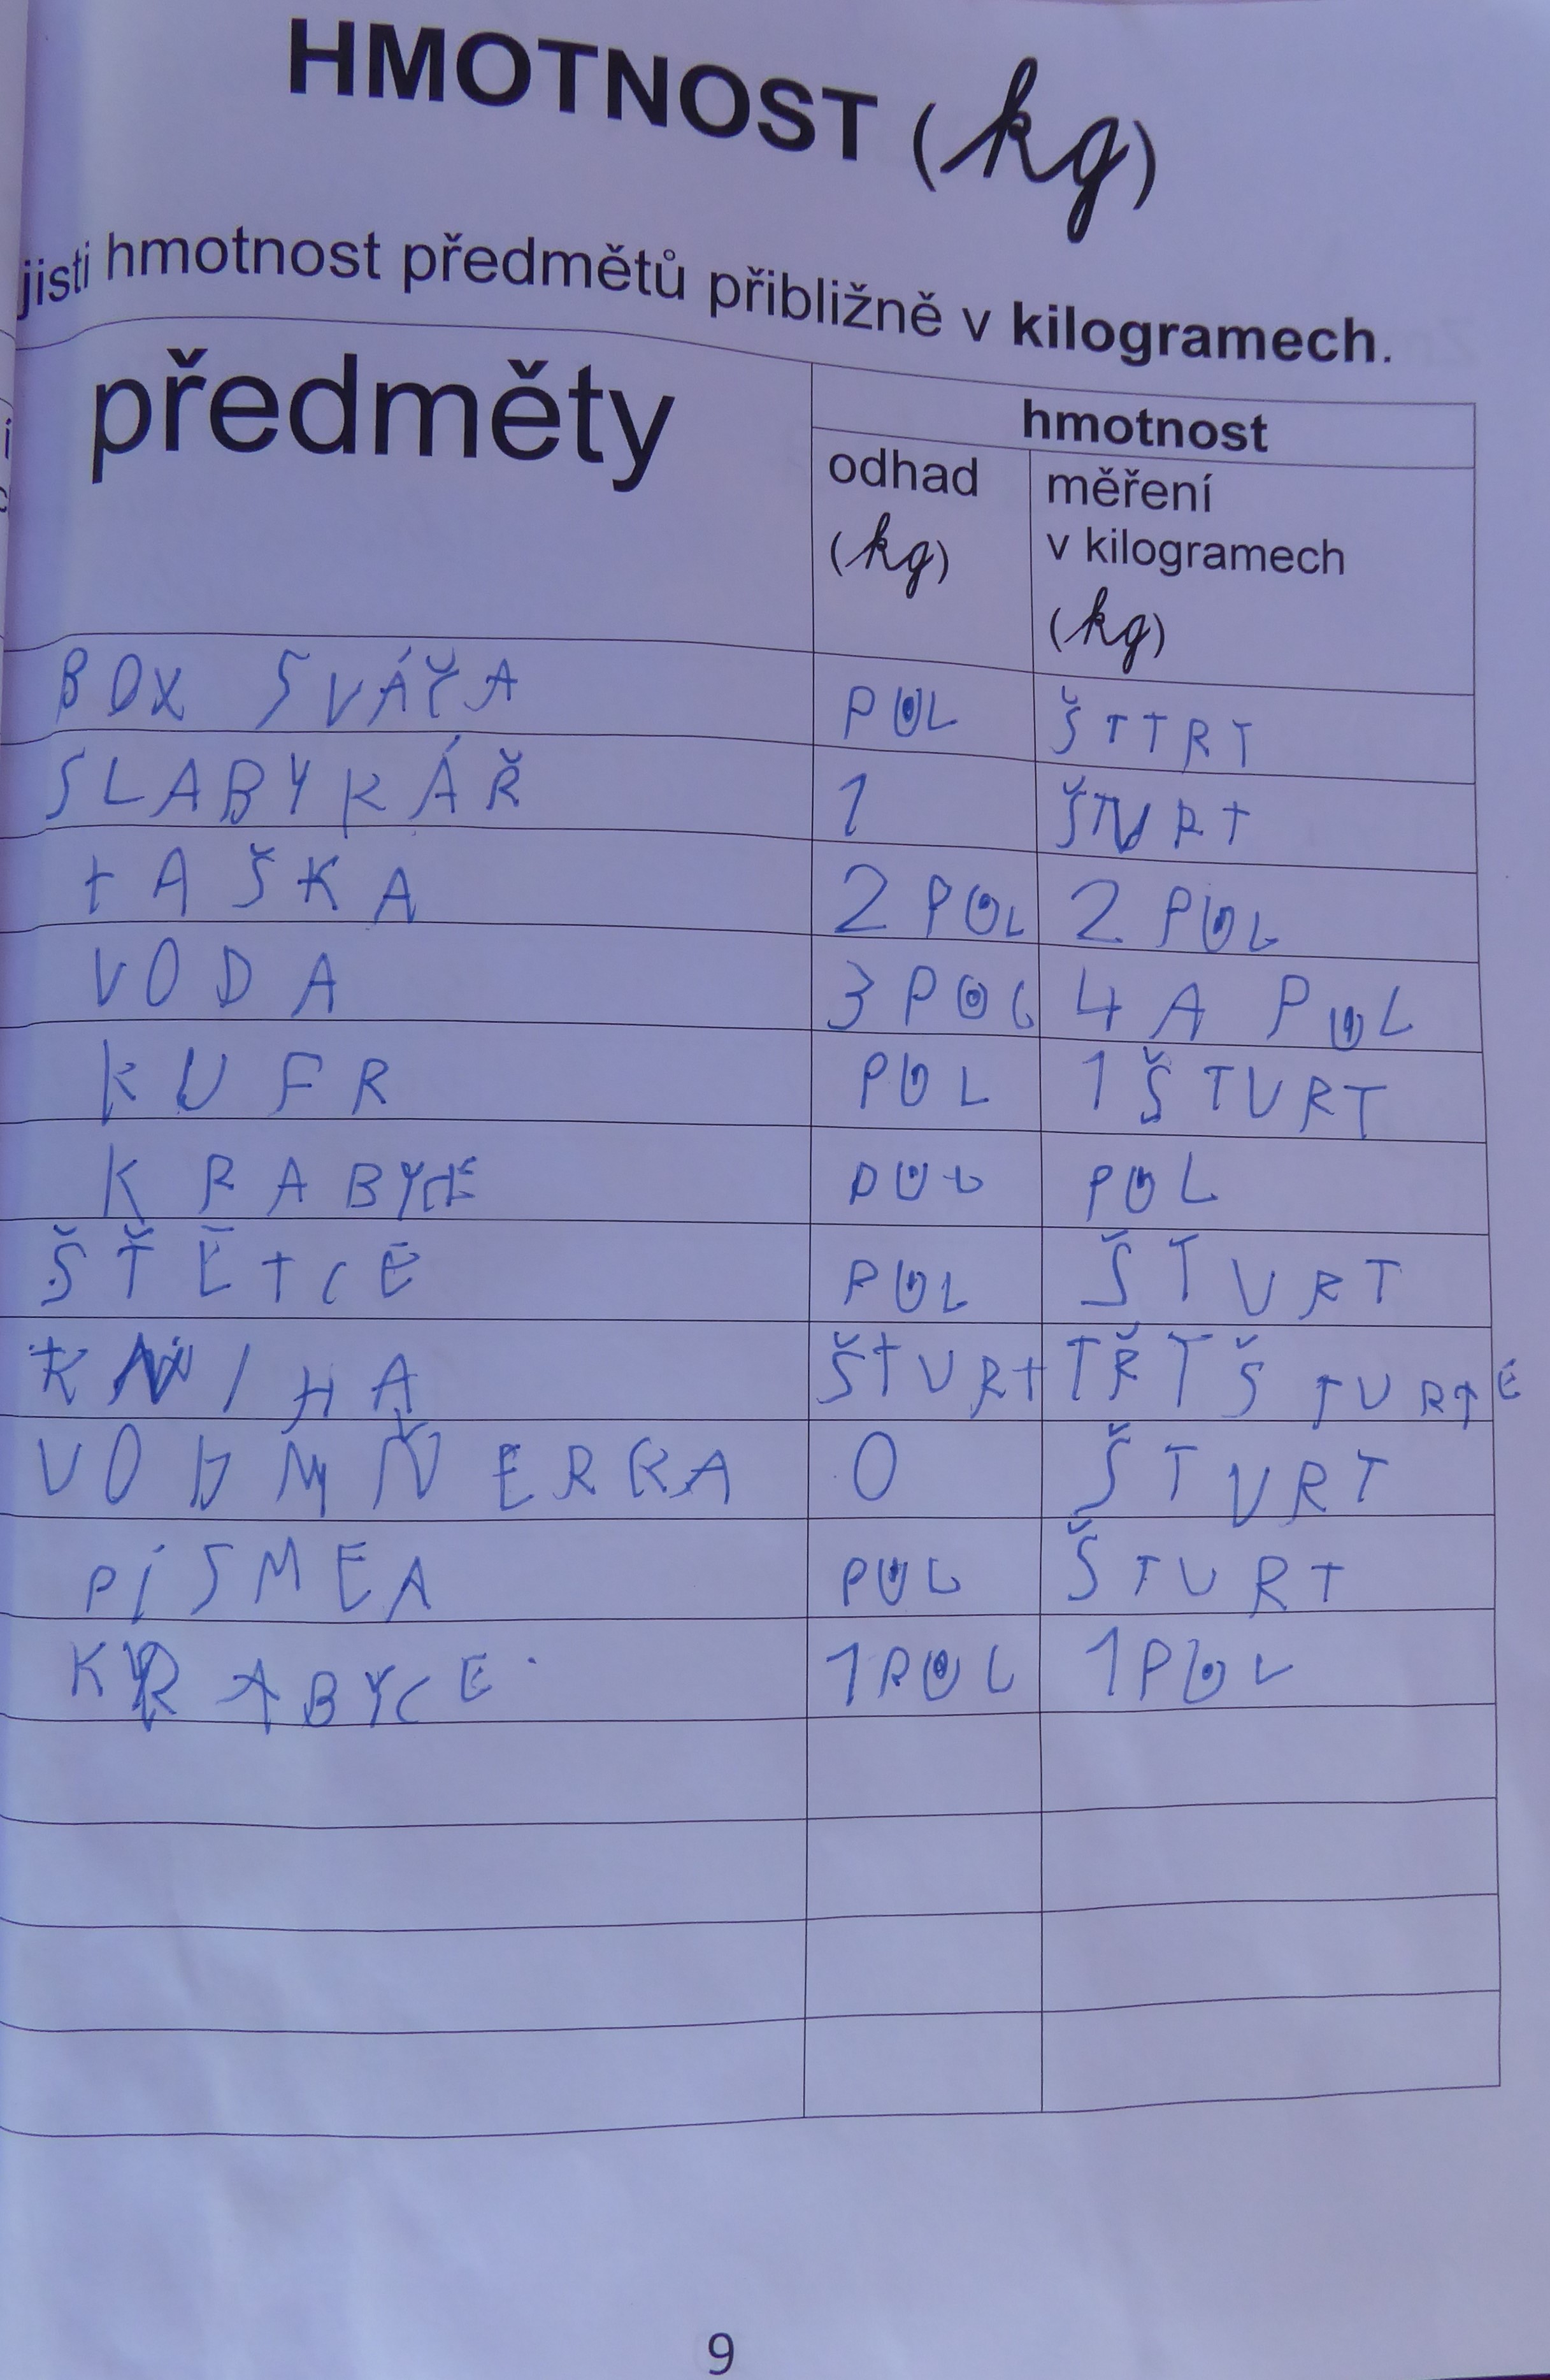 HMOTNOST (kg)
jisti hmotnost předmětů přibližně v kilogramech.
předměty
hmotnost
odhad
(kg)
měření
v kilogramech
(kg)
BOX SVÁČA PUL ŠTTRT
SLABYKÁŘ 1 ŠTVRT
TAŠKA 2 PUL 2 PUL
VODA 3 POL 4 A PUL
KUFR PUL 1 ŠTVRT
KRABYCE PUL PUL
ŠŤĚTCE PUL ŠTVRT
KNIHA ŠTVRT TŘI ŠTVRTĚ
VODMŇERKA 0 ŠTVRT
PÍSMEA PUL ŠTVRT
KRABYCE 1 PUL 1 PUL
9